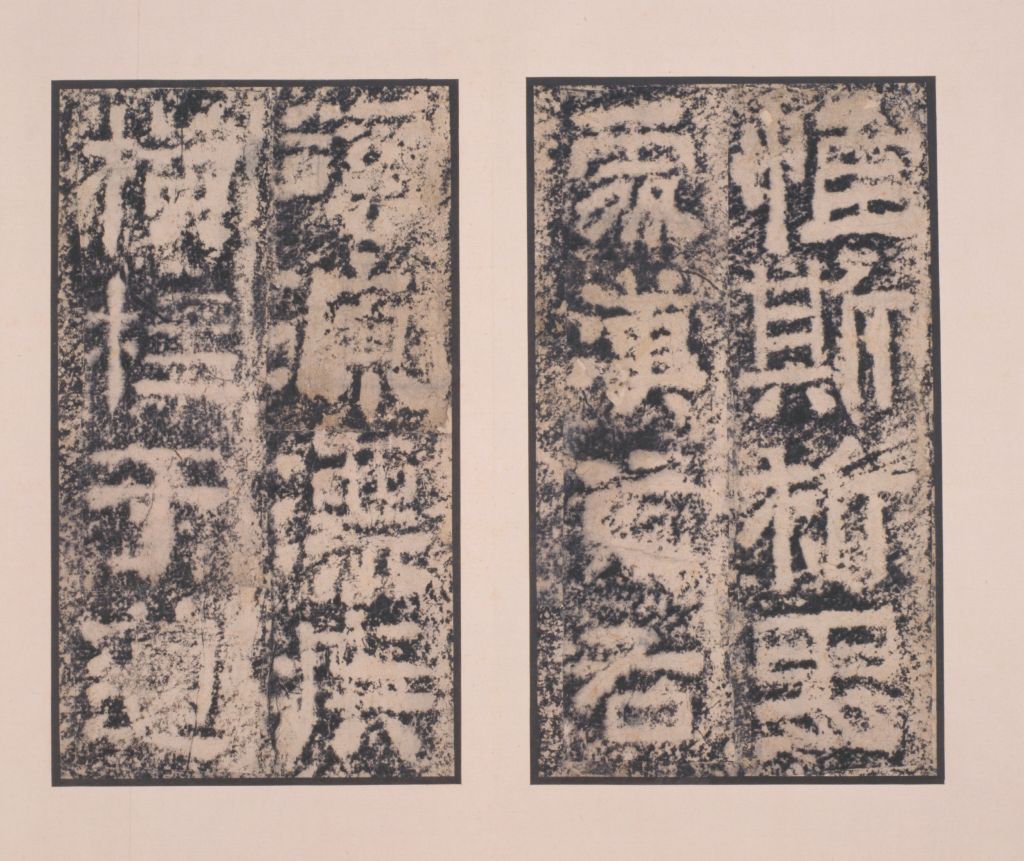 惟斯析里
處漢之右
谿源漂疾
橫柱于道